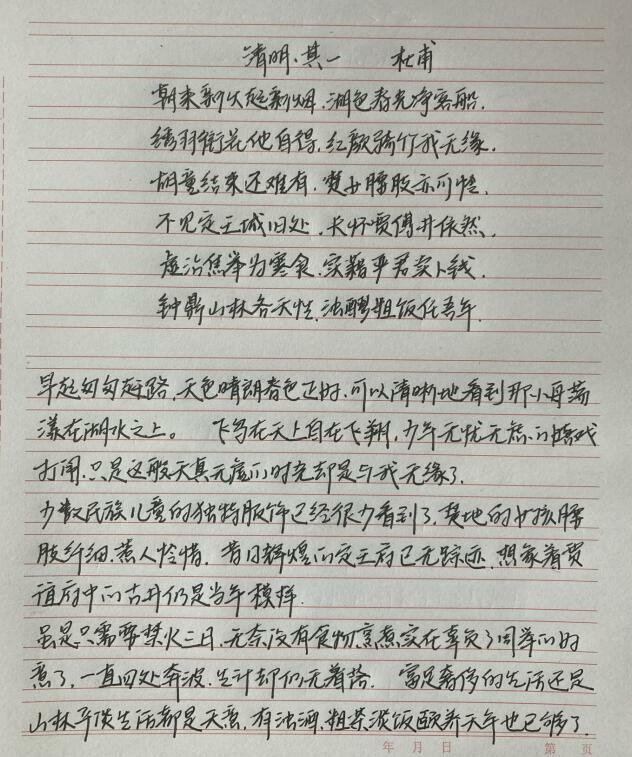 清明·其一 杜甫
朝来新火起新烟,湖色春光净客船,
绣羽衔花他自得,红颜骑竹我无缘.
胡童结束还难有,楚女腰肢亦可怜.
不见定王城旧处,长怀贾傅井依然,
虚沾焦举为寒食,实藉严君卖卜钱.
钟鼎山林各天性,浊醪粗饭任吾年.
早起匆匆赶路,天色晴朗春色正好,可以清晰地看到那小舟荡
漾在湖水之上。 飞鸟在天上自在飞翔,少年无忧无虑的嬉戏
打闹,只是这般天真无虑的时光却是与我无缘了.
少数民族儿童的独特服饰已经很少看到了,楚地的女孩腰
肢纤细,惹人怜惜. 昔日辉煌的定王府已无踪迹,想象着贾
谊府中的古井仍是当年模样.
虽是只需要禁火三日,无奈没有食物烹煮实在辜负了周举的好
意了,一直四处奔波,生计却仍无着落. 富足奢侈的生活还是
山林平淡生活都是天意,有浊酒,粗茶淡饭颐养天年也已够了.
年 月 日 第 页